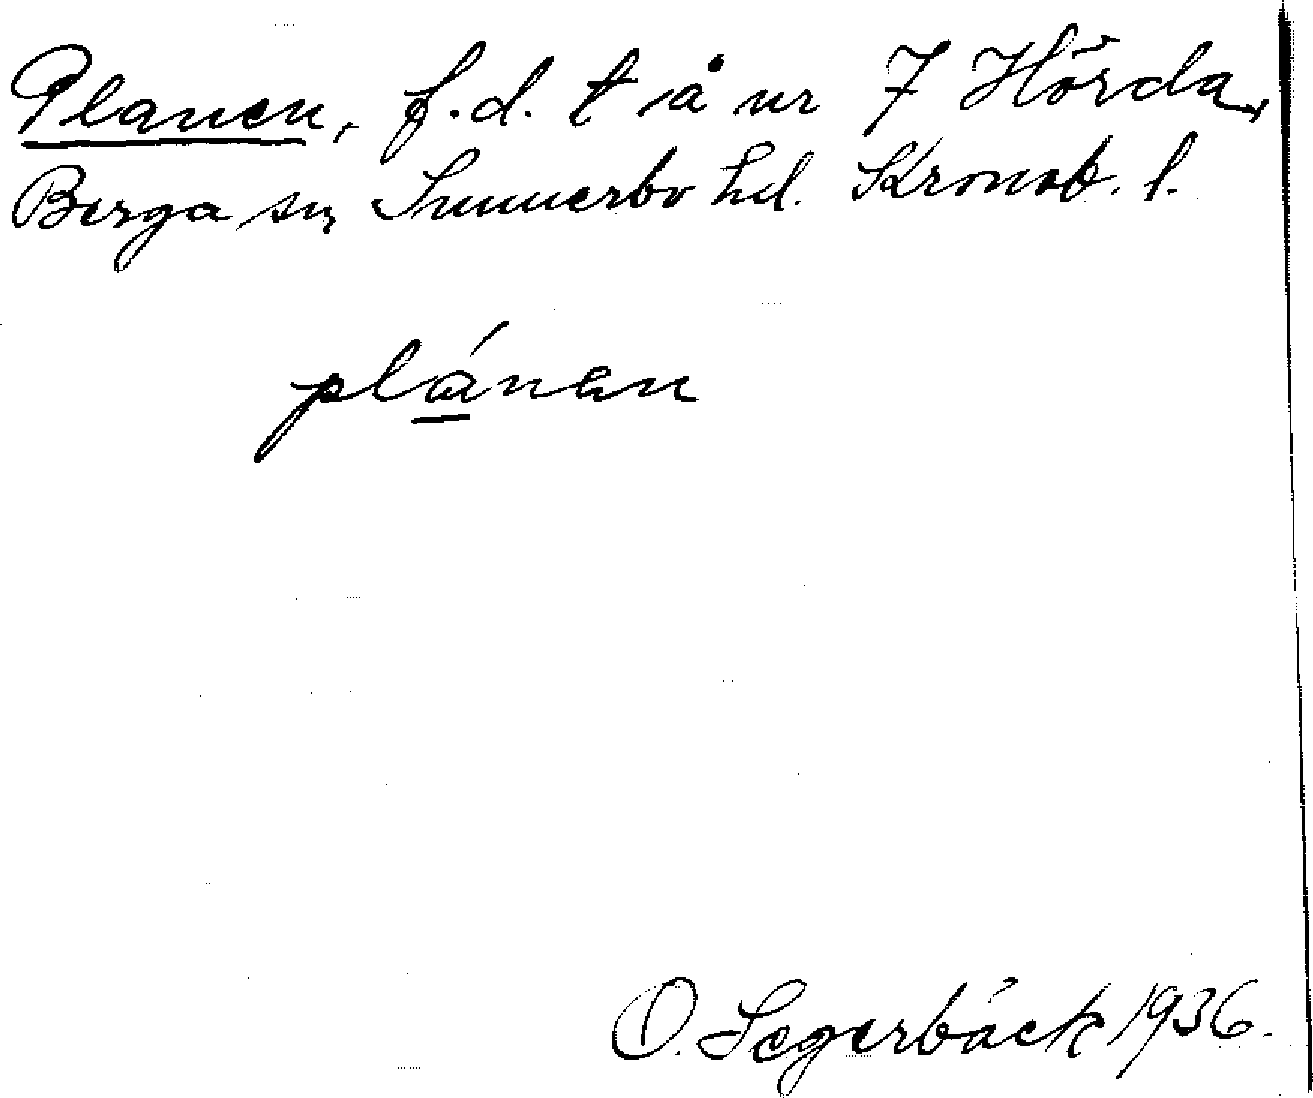 Planen, f.d. t å nr 7 Hörda,
Berga sn, Sunnerbo hd. Kronob. l.
plánan
O. Segerbäck 1936.